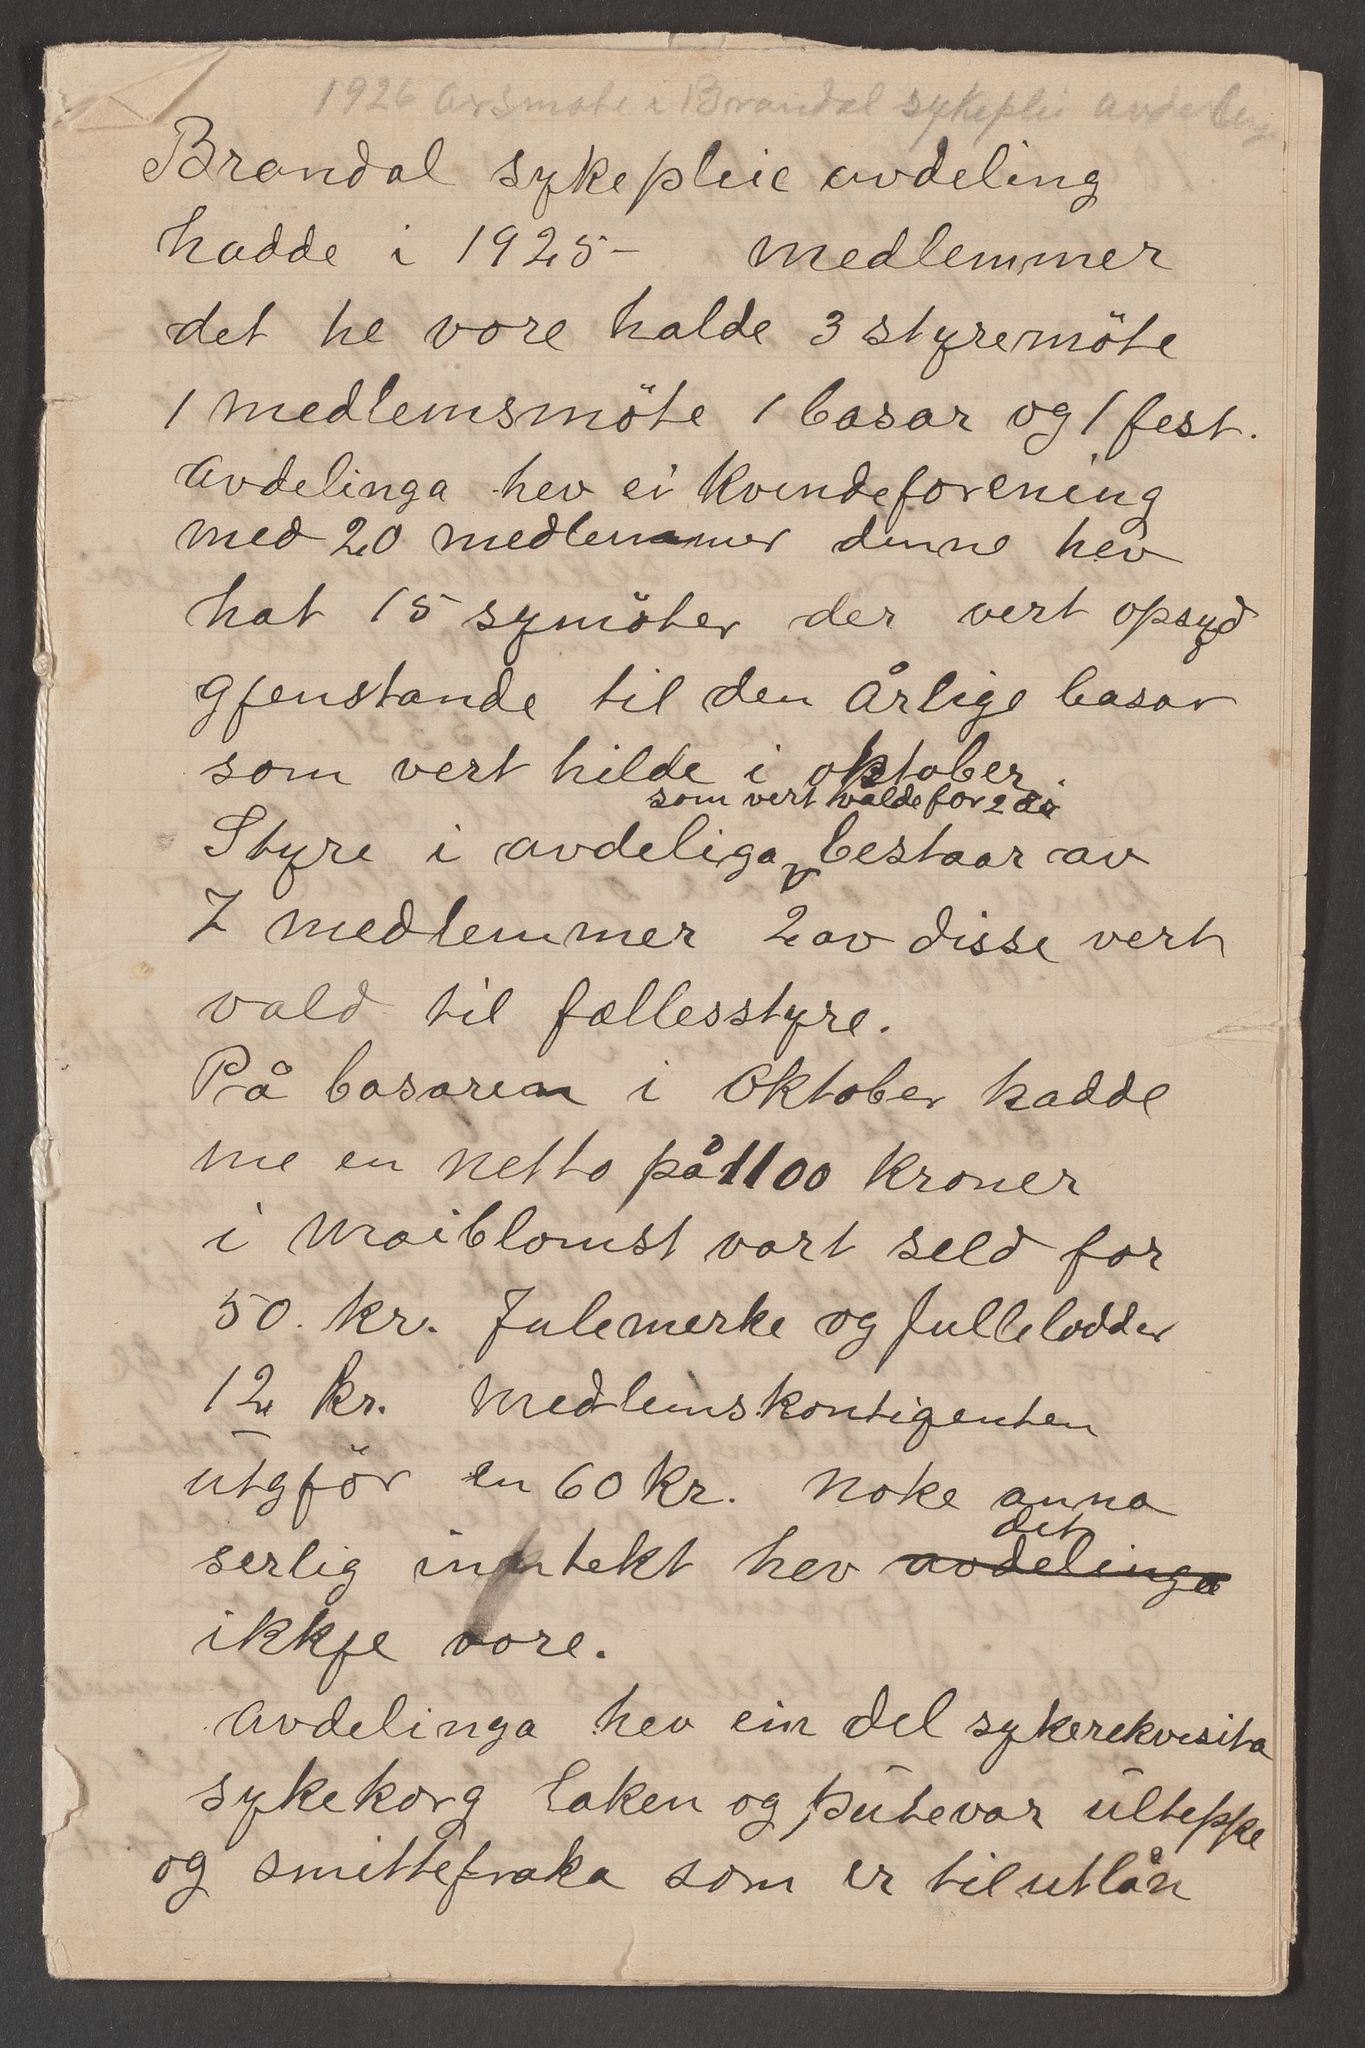 1926 Årsmøte i Brandal sykepleie avdeling
Brandal sykepleie avdeling
hadde i 1925- medlemmer
det he vore halde 3 styremöte
1 medlemsmöte 1 basar og 1 fest.
avdelinga hev ei Kvindeforening
med 20 medlemmer denne hev
hat 15 symöter der vert opsyd
gjenstande til den årlige basar
som vert hilde i oktober.
som vert valde for 2 år
Styre i avdeliga bestaar av
7 medlemmer 2 av disse vert
vald til fællesstyre.
På basaren i Oktober hadde
me en netto på 1100 kroner
i Maiblomst vart seld for
50. kr. Julemerke og Jullelodder
12 kr. Medlemskontigenten
utgjör en 60 kr. Noke anna
det
serlig inntekt hev avdelinga
ikkje vore.
Avdelinga hev ein del sykerekvisita
sykekorg laken og putevar ulteppe
og smittefraka som er til utlån